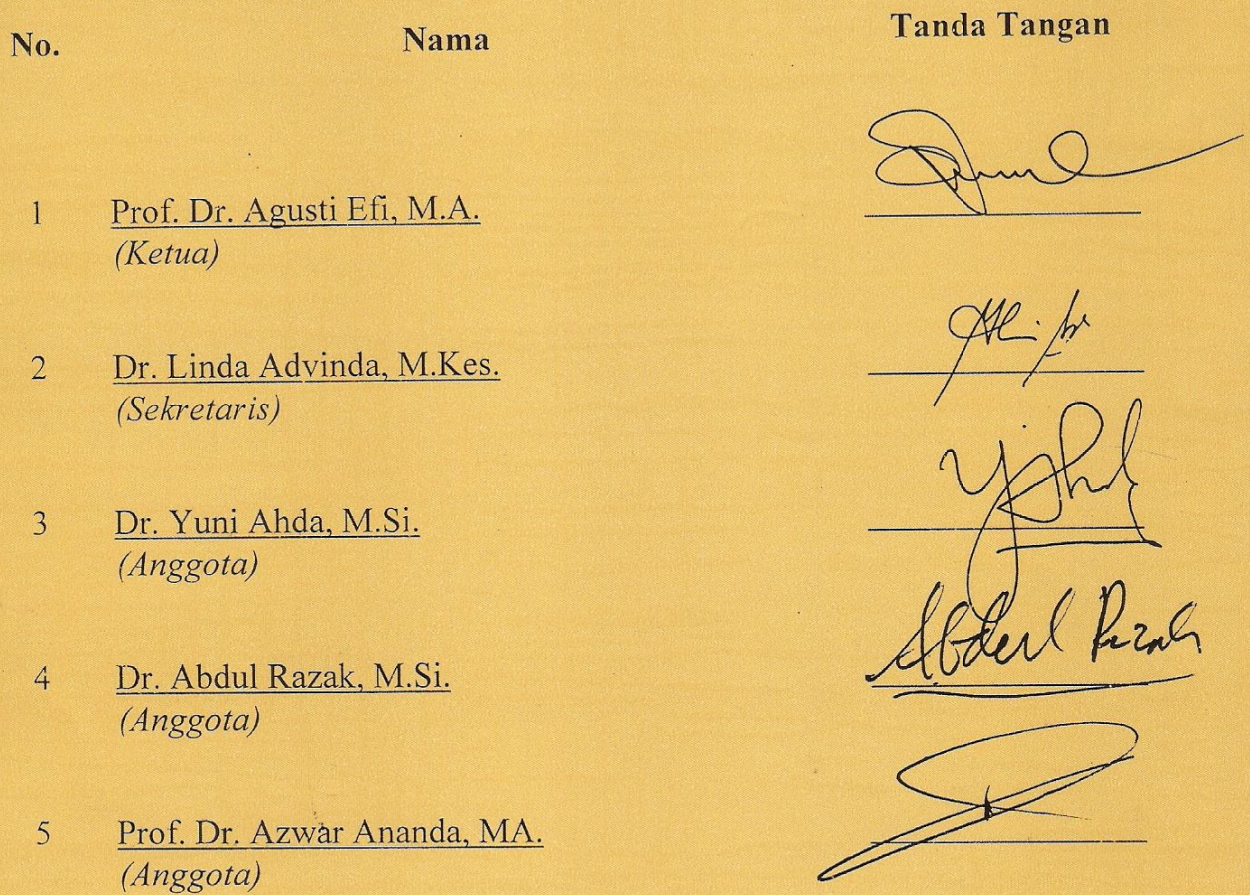 No. Nama Tanda Tangan
1 Prof. Dr. Agusti Efi, M.A.
(Ketua)
2 Dr. Linda Advinda, M.Kes.
(Sekretaris)
3 Dr. Yuni Ahda, M.Si.
(Anggota)
Abdul Razak
4 Dr. Abdul Razak, M.Si.
(Anggota)
5 Prof. Dr. Azwar Ananda, MA.
(Anggota)